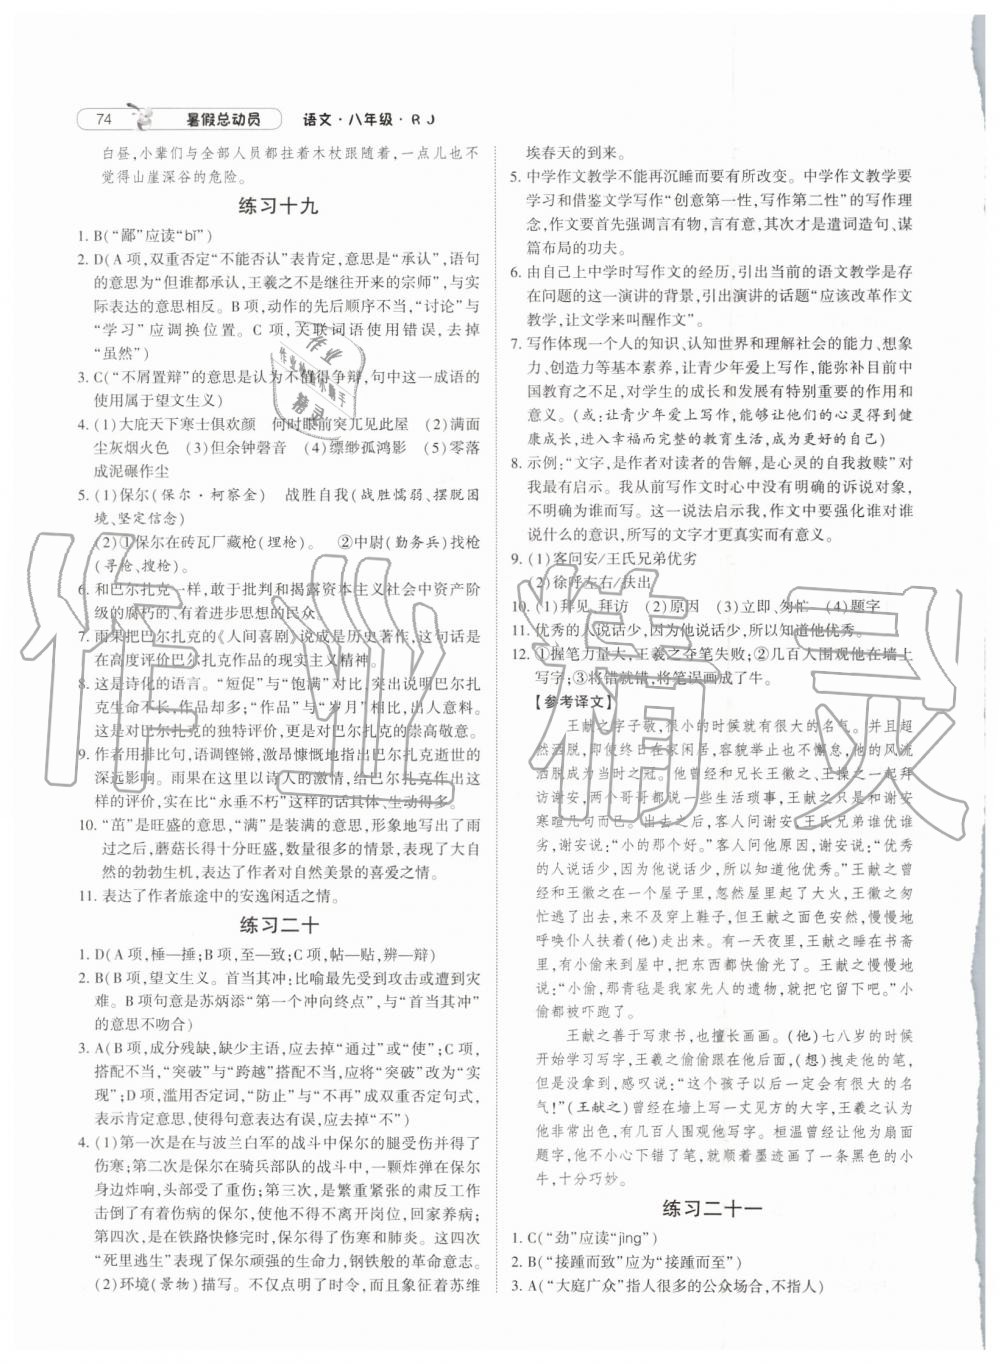 74 暑假总动员 语文·八年级·RJ
白昼,小辈们与全部人员都拄着木杖跟随着,一点儿也不
觉得山崖深谷的危险。
练习十九
1. B(“鄙”应读“bǐ”)
2. D(A 项,双重否定“不能否认”表肯定,意思是“承认”,语句
的意思为“但谁都承认,王羲之不是继往开来的宗师”,与
实际表达的意思相反。B 项,动作的先后顺序不当,“讨论”与
“学习”应调换位置。C 项,关联词语使用错误,去掉
“虽然”)
3. C(“不屑置辩”的意思是认为不值得争辩,句中这一成语的
使用属于望文生义)
4. (1)大庇天下寒士俱欢颜 何时眼前突兀见此屋 (2)满面
尘灰烟火色 (3)但余钟磬音 (4)缥缈孤鸿影 (5)零落
成泥碾作尘
5. (1)保尔(保尔·柯察金) 战胜自我(战胜懦弱、摆脱困
境、坚定信念)
(2)①保尔在砖瓦厂藏枪(埋枪)。 ②中尉(勤务兵)找枪
(寻枪、搜枪)。
6. 和巴尔扎克一样,敢于批判和揭露资本主义社会中资产阶
级的腐朽的、有着进步思想的民众。
7. 雨果把巴尔扎克的《人间喜剧》说成是历史著作,这句话是
在高度评价巴尔扎克作品的现实主义精神。
8. 这是诗化的语言。“短促”与“饱满”对比,突出了巴尔扎
克生命不长,作品却丰富;“作品”与“岁月”对比,出人意料。
这是对巴尔扎克的独特评价,更突出了巴尔扎克的崇高敬意。
9. 作者用排比句,语调铿锵,激昂慷慨地指出巴尔扎克逝世的
深远影响。雨果在这里以诗人的激情,给巴尔扎克作出这
样的评价,实在比“永垂不朽”这样的话具体、生动得多。
10. “茁”是旺盛的意思,“满”是装满的意思,形象地写出了雨
过之后,蘑菇长得十分旺盛,数量很多的情景,表现了大自
然的勃勃生机,表达了作者对自然美景的喜爱之情。
11. 表达了作者旅途中的安逸闲适之情。
练习二十
1. D(A 项,棰—捶;B 项,至—致;C 项,帖—贴,辨—辩)
2. B(B 项,望文生义。首当其冲:比喻最先受到攻击或遭到灾
难。B 项句意是苏炳添“第一个冲向终点”,与“首当其冲”
的意思不吻合)
3. A(B 项,成分残缺,缺少主语,应去掉“通过”或“使”;C 项,
搭配不当,“突破”与“跨越”搭配不当,应去掉“跨越”或“突
破”;D 项,滥用否定词,“防止”与“不再”成双重否定句式,
表示肯定意思,使得句意表达有误,应去掉“不”)
4. (1)第一次是在与波兰白军的战斗中保尔的腿受伤并得了
伤寒;第二次是保尔在骑兵部队的战斗中,一颗炸弹在保尔
身边炸响,保尔受了重伤;第三次,是繁重紧张的肃反工作
加重了有着伤病的保尔,他不得不离开岗位,回家养病;
第四次,是在铁路快修完时,保尔得了伤寒和肺炎。这四次
“死里逃生”表现了保尔顽强的生命力,钢铁般的革命意志。
(2)环境(景物)描写。不仅点明了时令,而且象征着苏维
埃春天的到来。
5. 中学作文教学不能再沉睡而要有所改变。中学作文教学要
学习和借鉴文学写作“创意第一性,写作第二性”的写作理
念,作文要首先强调言有物,言有意,其次才是遣词造句、谋
篇布局的功夫。
6. 由自己上中学时写作文的经历,引出当前的语文教学是存
在问题的这一演讲的背景,引出演讲的话题“应该改革作文
教学,让文学来叫醒作文”。
7. 写作体现一个人的知识、认知世界和理解社会的能力、想象
力、创造力等基本素养,让青少年爱上写作,能弥补目前中
国教育之不足,对学生的成长和发展有特别重要的作用和
意义。(或:让青少年爱上写作,能够让他们的心灵得到健
康成长,进入幸福而完整的教育生活,成为更好的自己)
8. 示例:“文字,是作者对读者的告解,是心灵的自我救赎”对
我很有启示。我从前写作文时心中没有明确的诉说对象,
不明确为谁而写。这一说法启示我,作文中要强化谁对谁
说什么的意识,所写的文字才更真实而有意义。
9. (1)客问安/王氏兄弟优劣
(2)徐呼左右/扶出
10. (1)拜见,拜访 (2)原因 (3)立即,匆忙 (4)题字
11. 优秀的人说话少,因为他说话少,所以知道他优秀。
12. ①握笔力量大,王羲之夺笔失败;②几百人围观他在墙上
写字;③将错就错,将笔误画成了牛。
【参考译文】
王献之字子敬,很小的时候就有很大的名气。并且超
然洒脱,即使终日在家闲居,容貌举止也不懈怠,他的风流
洒脱成为当时之冠。他曾经和兄长王徽之、王操之一起拜
访谢安,两个哥哥都说一些生活琐事,王献之只是和谢安
寒暄几句而已。出去之后,客人问谢安,王氏兄弟谁优谁
劣,谢安说:“小的那个好。”客人问他原因,谢安说:“优秀
的人说话少,因为他说话少,所以知道他优秀。”王献之曾
经和王徽之在一个屋子里,忽然屋里起了大火,王徽之匆
忙逃了出去,来不及穿上鞋子,但王献之面色安然,慢慢地
呼唤仆人扶着(他)走出来。有一天夜里,王献之睡在书斋
里,有小偷来到他的屋里,把东西都偷光了。王献之慢慢
地说:“小偷,那青毡是我家先人的遗物,就把它留下吧。”小
偷都被吓跑了。
王献之善于写隶书,也擅长画画。(他)七八岁的时候
开始学习写字,王羲之偷偷跟在他后面,(想)拽走他的笔,
但是没拿到,感叹说:“这个孩子以后一定会有很大的名
气!”(王献之)曾经在墙上写一丈见方的大字,王羲之认为
他非常出色,有几百人围观他写字。桓温曾经让他为扇面
题字,他不小心下错了笔,就顺着墨迹画了一条黑色的小
牛,十分巧妙。
练习二十一
1. C(“劲”应读“jìng”)
2. B(“接踵而致”应为“接踵而至”)
3. A(“大庭广众”指人很多的公众场合,不指人)